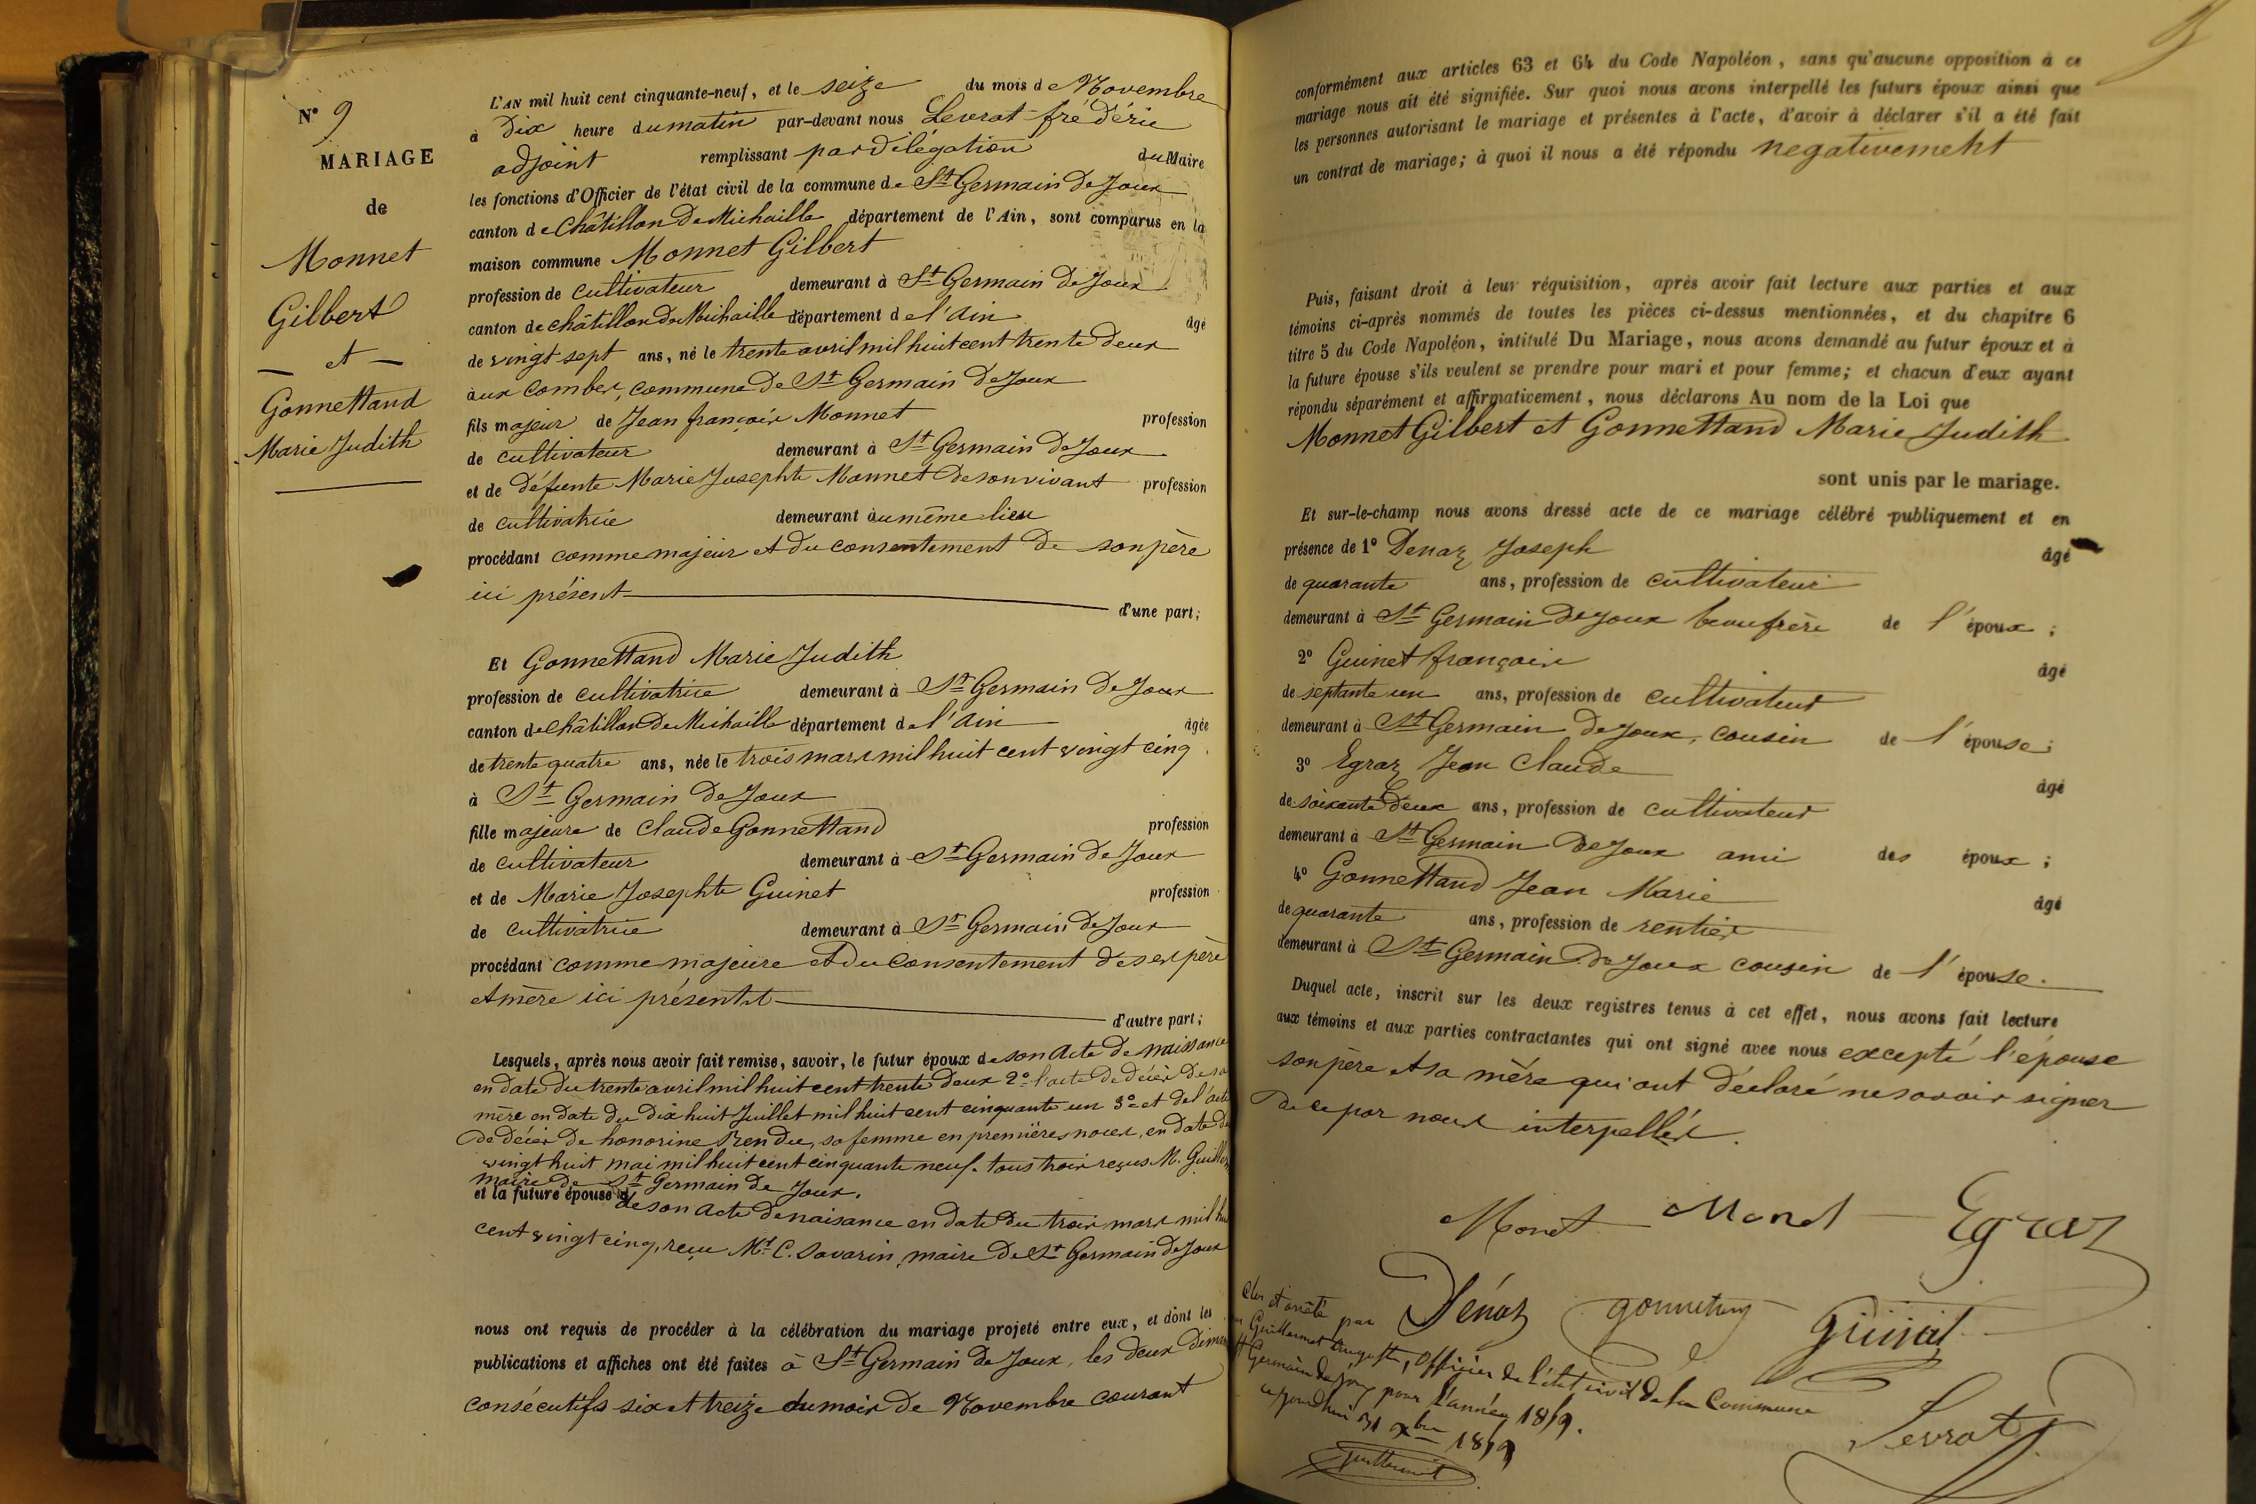 N° 9
MARIAGE
de
Monnet
Gilbert
et
Gonnettand
Marie Judith
L'AN mil huit cent cinquante-neuf, et le seize du mois de Novembre
à Dix heure du matin par-devant nous Levrat frédéric
adjoint remplissant par délégation du Maire
les fonctions d'Officier de l'état civil de la commune de St Germain de Joux
canton de Châtillon de Michaille département de l'Ain, sont comparus en la
maison commune Monnet Gilbert
profession de cultivateur demeurant à St Germain de Joux
canton de châtillon de Michaille département de l'ain âgé
de vingt sept ans, né le trente avril mil huit cent trente deux
aux combes, commune de St Germain de Joux
fils majeur de Jean françois Monnet profession
de cultivateur demeurant à St Germain de Joux
et de défunte Marie Josephte Monnet de son vivant profession
de cultivatrice demeurant au même lieu
procédant comme majeur et du consentement de son père
ici présent d'une part;
Et Gonnettand Marie Judith
profession de cultivatrice demeurant à St Germain de Joux
canton de châtillon de Michaille département de l'ain âgée
de trente quatre ans, née le trois mars mil huit cent vingt cinq
à St Germain de Joux
fille majeure de Claude Gonnettand profession
de cultivateur demeurant à St Germain de Joux
et de Marie Josephte Guinet profession
de cultivatrice demeurant à St Germain de Joux
procédant comme majeure et du consentement de ses père
et mère ici présents d'autre part;
Lesquels, après nous avoir fait remise, savoir, le futur époux de son acte de naissance
en date du trente avril mil huit cent trente deux 2° l'acte de décès de sa
mère en date du dix huit Juillet mil huit cent cinquante un 3° et de l'acte
de décès de honorine Rendu, sa femme en premières noces, en date du
vingt huit mai mil huit cent cinquante neuf. tous trois reçus M.
maire de St Germain de Joux.
et la future épouse de son acte de naisance en date du trois mars mil
cent vingt cinq, reçu Mr C. Savarin, maire de St Germain de Joux
nous ont requis de procéder à la célébration du mariage projeté entre eux, et dont les
publications et affiches ont été faites à St Germain de Joux, les deux
consécutifs six et treize du mois de Novembre courant
conformément aux articles 63 et 64 du Code Napoléon, sans qu'aucune opposition à ce
mariage nous ait été signifiée. Sur quoi nous avons interpellé les futurs époux ainsi que
les personnes autorisant le mariage et présentes à l'acte, d'avoir à déclarer s'il a été fait
un contrat de mariage; à quoi il nous a été répondu negativement
Puis, faisant droit à leur réquisition, après avoir fait lecture aux parties et aux
témoins ci-après nommés de toutes les pièces ci-dessus mentionnées, et du chapitre 6
titre 5 du Code Napoléon, intitulé Du Mariage, nous avons demandé au futur époux et à
la future épouse s'ils veulent se prendre pour mari et pour femme; et chacun d'eux ayant
répondu séparément et affirmativement, nous déclarons Au nom de la Loi que
Monnet Gilbert et Gonnettand Marie Judith
sont unis par le mariage.
Et sur-le-champ nous avons dressé acte de ce mariage célébré publiquement et en
présence de 1° Denaz Joseph âgé
de quarante ans, profession de cultivateur
demeurant à St Germain de Joux beaufrère de l'époux;
2° Guinet françois âgé
de septante un ans, profession de cultivateur
demeurant à St Germain de Joux, cousin de l'épouse;
3° Egraz Jean Claude âgé
de soixante deux ans, profession de cultivateur
demeurant à St Germain de Joux ami des époux;
4° Gonnettand Jean Marie âgé
de quarante ans, profession de rentier
demeurant à St Germain de Joux cousin de l'épouse.
Duquel acte, inscrit sur les deux registres tenus à cet effet, nous avons fait lecture
aux témoins et aux parties contractantes qui ont signé avec nous excepté l'épouse
son père et sa mère qui ont déclaré ne savoir signer
de ce par nous interpellés.
Monet Monet Egraz
Dénaz gonnetan Guinet
Clos et arrêté par
Guillermet Auguste, Officier de l'état civil de la Commune
St Germain de Joux pour l'année 1859.
ce jourd'hui 31 Xbre 1859
Guillermet
Levrat